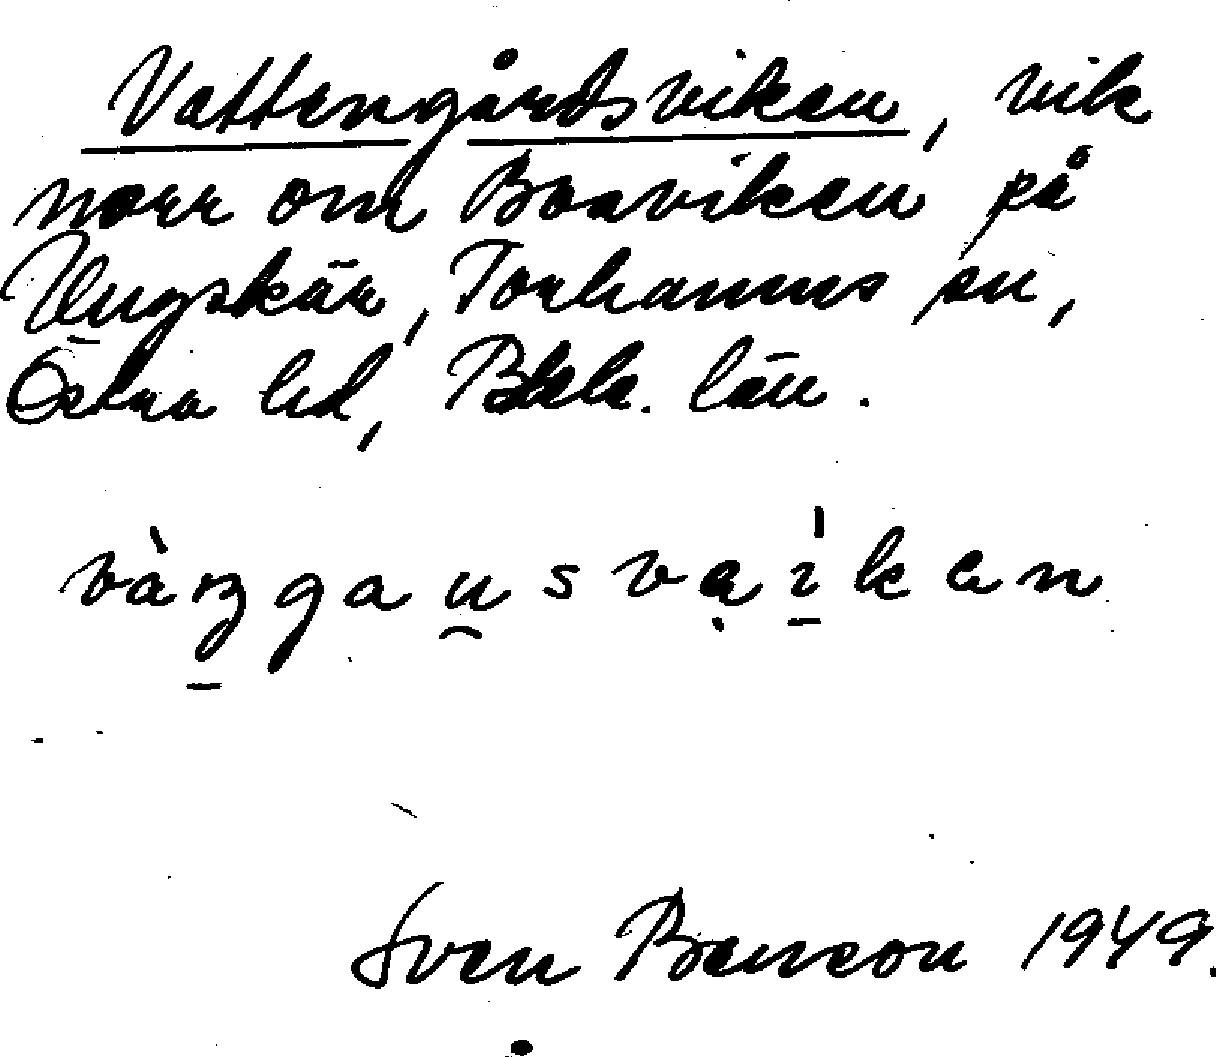 Vattengårdsviken, vik
norr om Boaviken på
Ungskär, Torhamns sn,
Östra hd, Blek. län.
Sven Benson 1949.